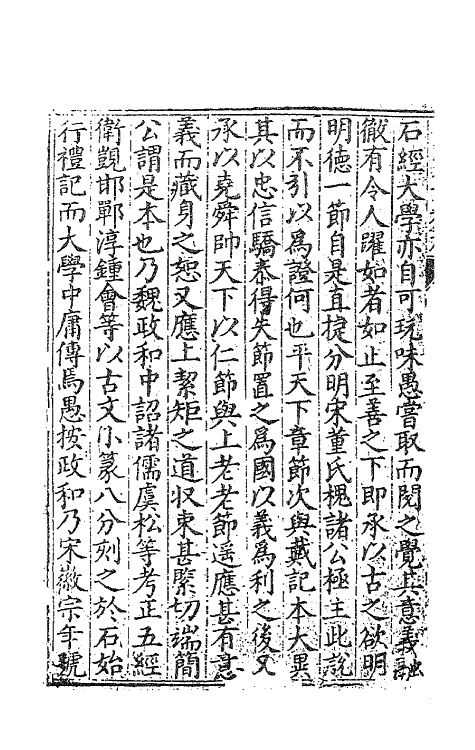 石經大學亦自可玩味愚嘗取而閱之覺其意義融
徹有令人躍如者如止至善之下即承以古之欲明
明德一節自是直捷分明宋董氏槐諸公極主此說
而不引以爲證何也平天下章節次與戴記本大異
其以忠信驕泰得失節置之爲國以義爲利之後又
承以堯舜帥天下以仁節與上老老節遥應甚有意
義而藏身之恕又應上絜矩之道収束甚緊切端簡
公謂是本也乃魏政和中詔諸儒虞松等考正五經
衛覬邯鄲淳鍾會等以古文小篆八分刻之於石始
行禮記而大學中庸傳焉愚按政和乃宋徽宗年號